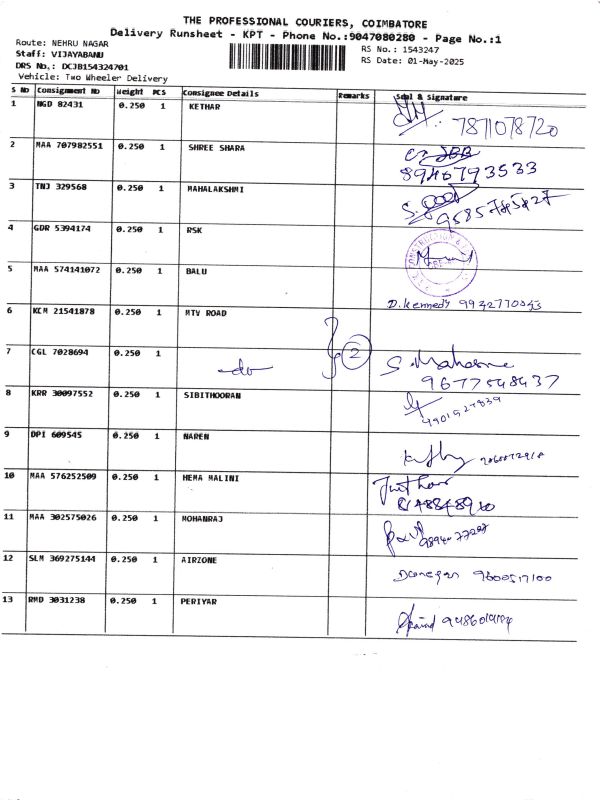 THE PROFESSIONAL COURIERS, COIMBATORE
Delivery Runsheet - KPT - Phone No.:9047080280 - Page No.:1
Route: NEHRU NAGAR
RS No.: 1543247
Staff: VIJAYABANU
RS Date: 01-May-2025
DRS No.: DCJB154324701
Vehicle: Two Wheeler Delivery
S No Consignment No Weight PCS Consignee Details Remarks Seal & Signature
1 NGD 82431 0.250 1 KETHAR
7871078720
2 MAA 707982551 0.250 1 SHREE SHARA
8946793533
3 TNJ 329568 0.250 1 MAHALAKSHMI
4 GDR 5394174 0.250 1 RSK
5 MAA 574141072 0.250 1 BALU
D. Kennedy
6 KCM 21541878 0.250 1 MTV ROAD
2
7 CGL 7028694 0.250 1 do
9677548437
8 KRR 30097552 0.250 1 SIBITHOORAN
9 DPI 609545 0.250 1 NAREN
10 MAA 576252509 0.250 1 HEMA MALINI
11 MAA 302575026 0.250 1 MOHANRAJ
12 SLM 369275144 0.250 1 AIRZONE
13 RMD 3031238 0.250 1 PERIYAR